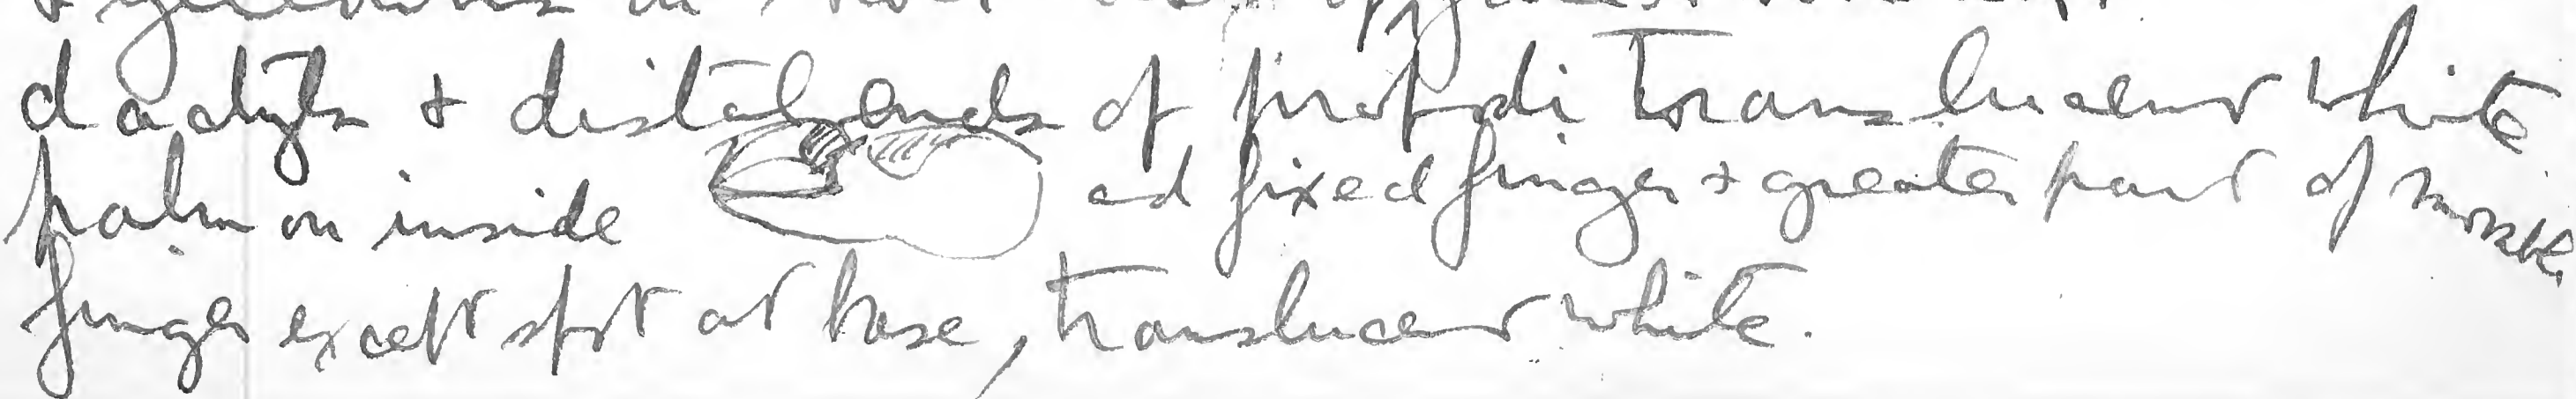 dactyls + distal ends of propodi translucent white
palm on inside and fixed finger + greater part of movable
finger except spot at base, translucent white.